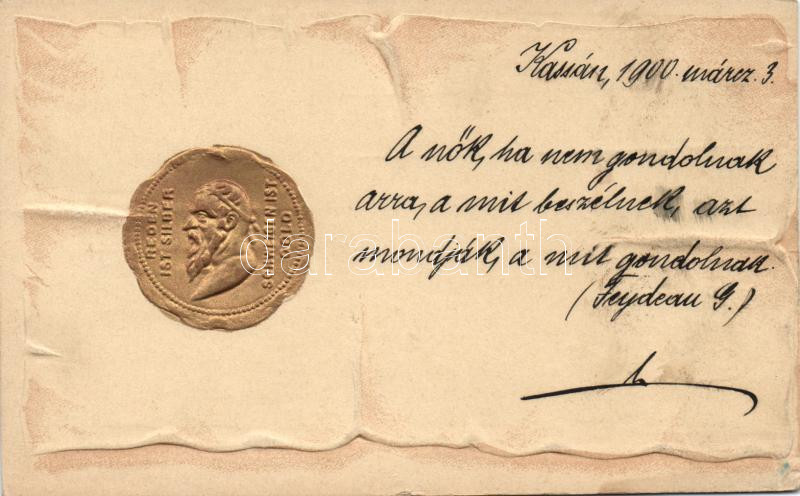 Kassán, 1900. márcz. 3.
A nők, ha nem gondolnak
arra, a mit beszélnek, azt
mondják, a mit gondolnak.
(Feydeau G.)
REDEN
IST SILBER
SCHWEIGEN IST
GOLD
darabanth